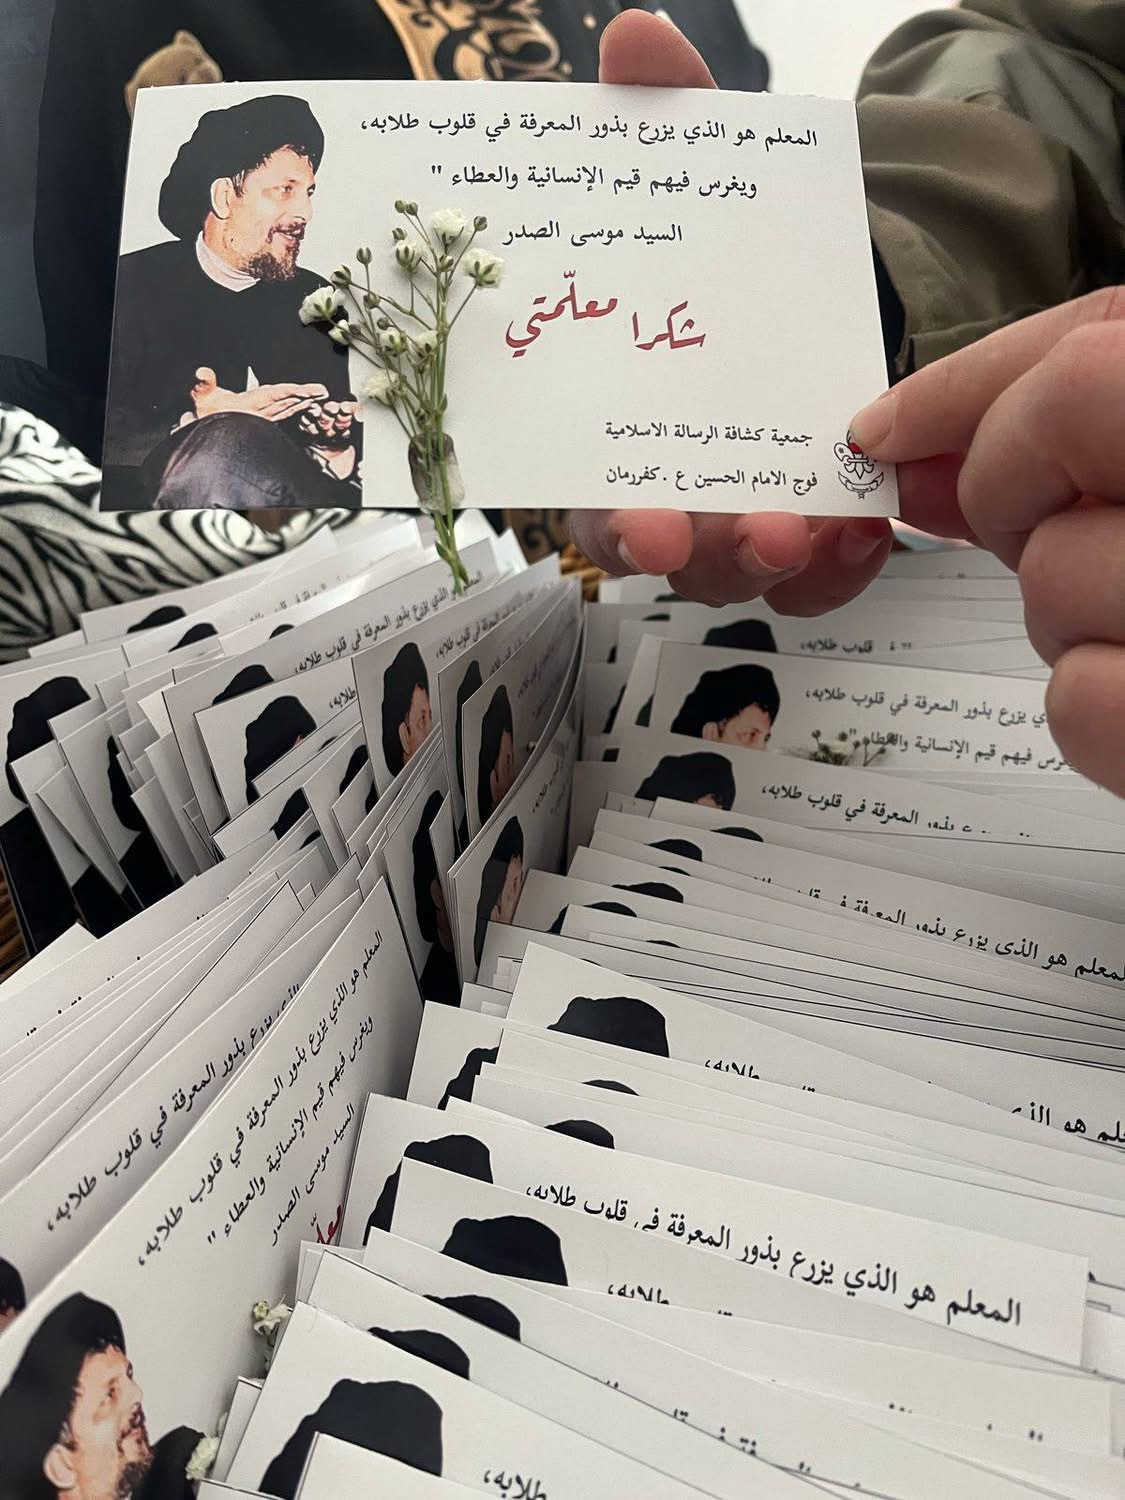 المعلم هو الذي يزرع بذور المعرفة في قلوب طلابه،
ويغرس فيهم قيم الإنسانية والعطاء "
السيد موسى الصدر
شكرا معلّمتي
جمعية كشافة الرسالة الاسلامية
فوج الامام الحسين ع .كفررمان
المعلم هو الذي يزرع بذور المعرفة في قلوب طلابه،
قلوب طلابه،
طلابه،
يزرع بذور المعرفة في قلوب طلابه،
قيم الإنسانية والعطاء "
بذور المعرفة في قلوب طلابه،
هو الذي يزرع بذور المعرفة في قلوب طلابه،
المعلم هو الذي يزرع بذور المعرفة في قلوب طلابه،
ويغرس فيهم قيم الإنسانية والعطاء "
السيد موسى الصدر
طلابه،
المعلم هو الذي يزرع بذور المعرفة في قلوب طلابه،
طلابه،
طلابه،